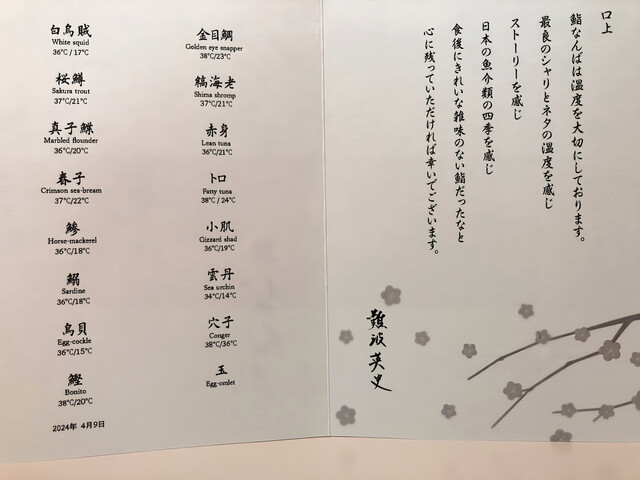 白烏賊
White squid
36℃/17℃
桜鱒
Sakura trout
37℃/21℃
真子鰈
Marbled flounder
36℃/20℃
春子
Crimson sea-bream
37℃/22℃
鯵
Horse-mackerel
36℃/18℃
鰯
Sardine
36℃/18℃
鳥貝
Egg-cockle
36℃/15℃
鰹
Bonito
38℃/20℃
2024年 4月9日
金目鯛
Golden eye snapper
38℃/23℃
縞海老
Shima shromp
37℃/21℃
赤身
Lean tuna
36℃/21℃
トロ
Fatty tuna
38℃/24℃
小肌
Gizzard shad
36℃/19℃
雲丹
Sea urchin
34℃/14℃
穴子
Conger
38℃/36℃
玉
Egg-omlet
口上
鮨なんばは温度を大切にしております。
最良のシャリとネタの温度を感じ
ストーリーを感じ
日本の魚介類の四季を感じ
食後にきれいな雑味のない鮨だったなと
心に残っていただければ幸いでございます。
難波英史